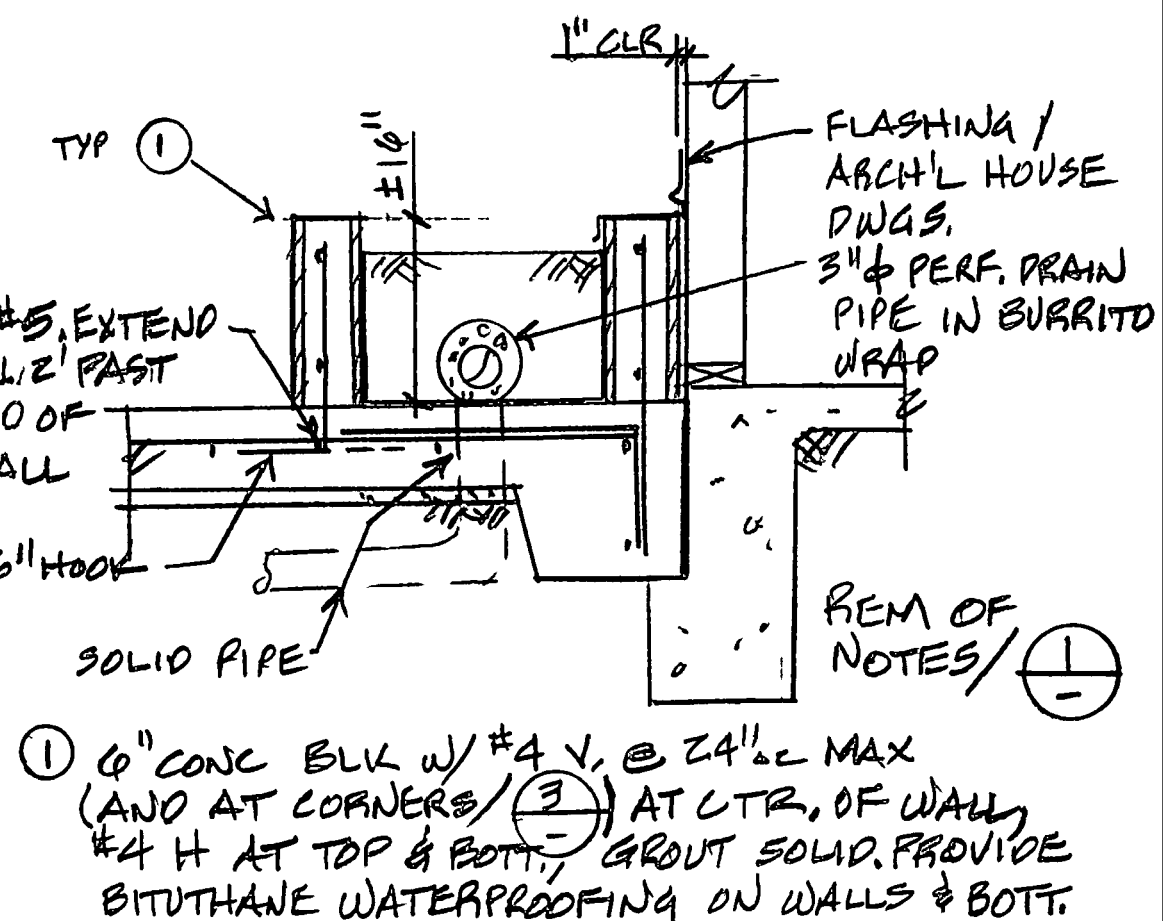 1" CLR
TYP 1
±16"
FLASHING /
ARCH'L HOUSE
DWGS.
3"ϕ PERF. DRAIN
PIPE IN BURRITO
WRAP
#5. EXTEND
2' PAST
OF
6" HOOK
SOLID PIPE
REM OF
NOTES/ 1
-
1 6" CONC BLK W/ #4 V. @ 24" oc MAX
(AND AT CORNERS/ 3/-) AT CTR. OF WALL,
#4 H AT TOP & BOTT., GROUT SOLID. PROVIDE
BITUTHANE WATERPROOFING ON WALLS & BOTT.